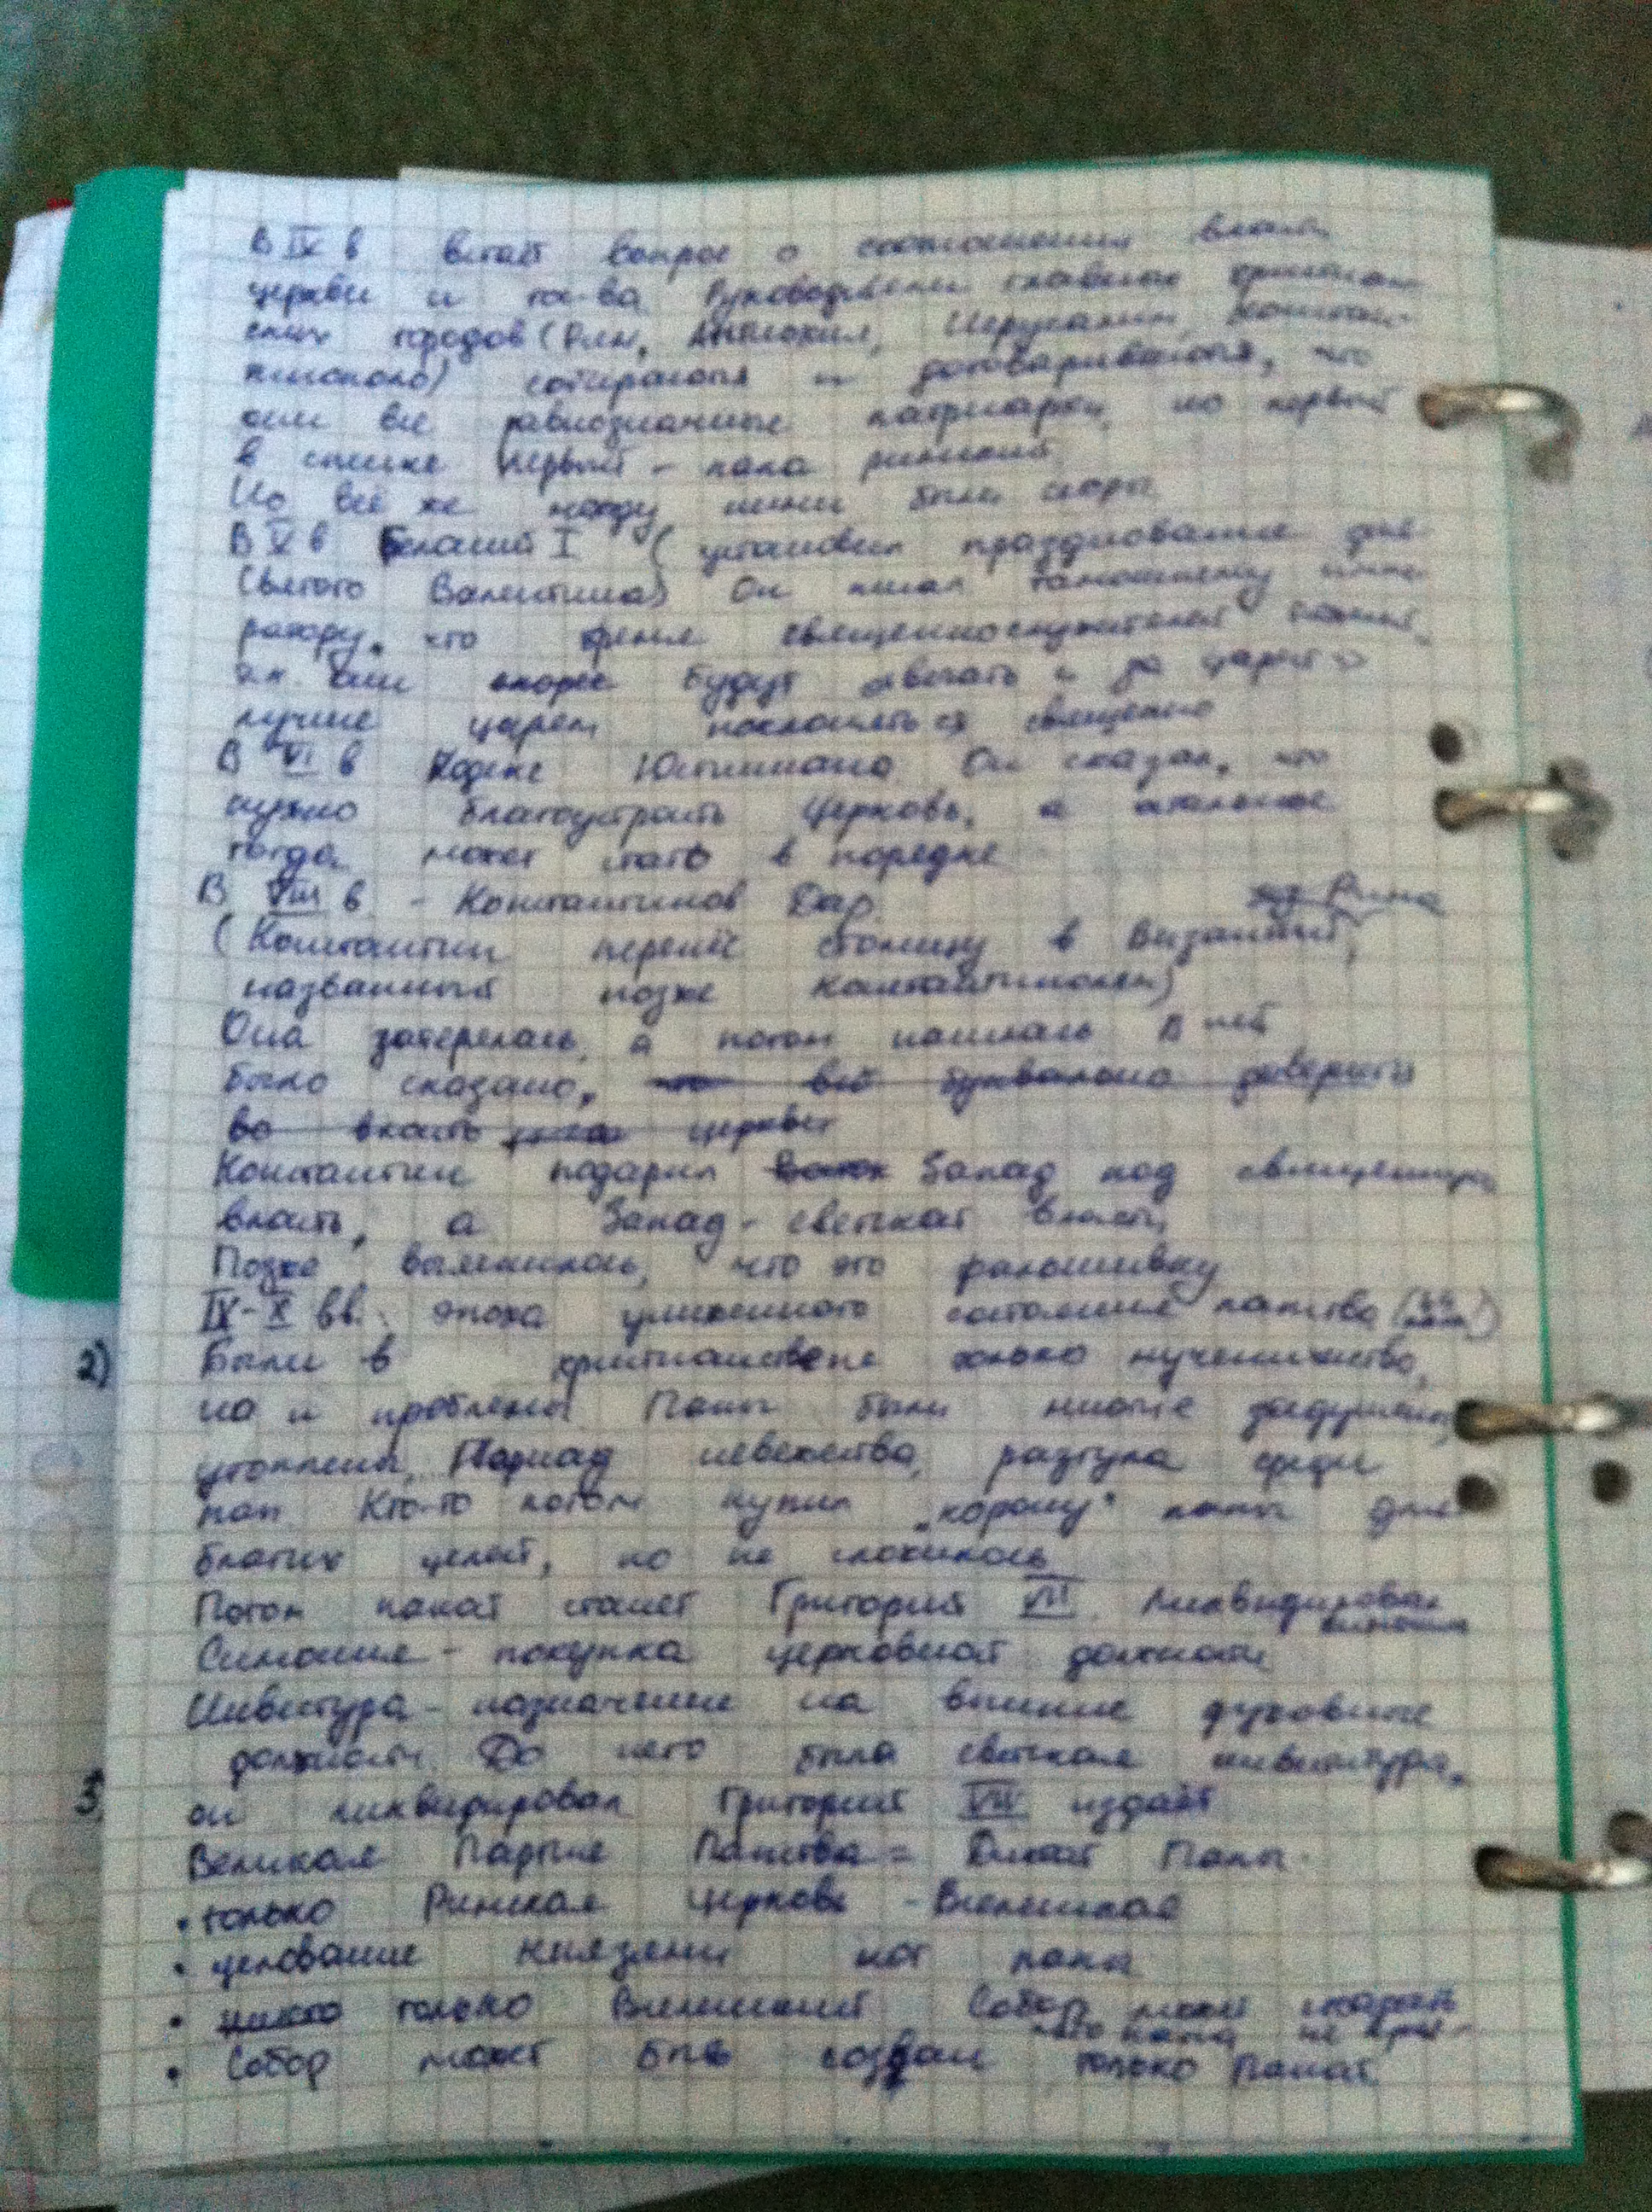 В IV в встаёт вопрос о соотношении власти
церкви и гос-ва. Руководители главных христиан
ских городов (Рим, Антиохия, Иерусалим, Констан-
тинополь) собираются и договариваются, что
они все равнозначные патриархи, но первый
в списке первый - папа римский
Но всё же между ними были споры
В V в Геласий I (установил празднование дня
Святого Валентина) Он писал тогдашнему импе
ратору, что бремя священнослужителей
они скорее будут отвечать и за царей =>
лучше царям поклоняться священно
В VI в Кодекс Юстиниана. Он сказал, что
нужно благоустроить Церковь, а остальное
тогда может стать в порядке
В VIII в - Константинов Дар. Рима
(Константин перенёс столицу в Византий,
названный позже Константинополем)
Она затерялась, а потом нашлась В ней
было сказано, что всё буквально доверить
во власть церкви
Константин подарил Восток Запад под священную
власть, а Запад - светской власти
Позже выяснилось, что это фальшивку
IX-X вв. эпоха униженного состояния папства
Были в христианстве не только мученичество,
но и проблемы Папы были многие задушены,
утоплены, Период невежества, разгула среди
пап Кто-то потом купил "корону" папы для
благих целей, но не сложилось
Потом папой станет Григорий VII. Ликвидировал
симонию
Симония - покупка церковной должности
Инвеститура - назначение на высшие духовные
должности До него была светская инвеститура,
он ликвидировал Григорий VII издаёт
Великая Партия Папства = Диктат Папы
• только Римская церковь - Вселенская
• целование князьями ног папы
• никто только Вселенский Собор может сказать
что папа не прав
• Собор может быть создан только Папой